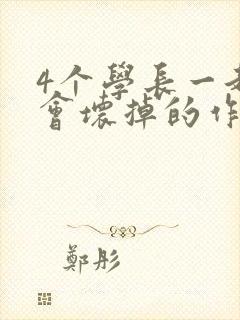 4个學長一
會壞掉的作
鄭彤